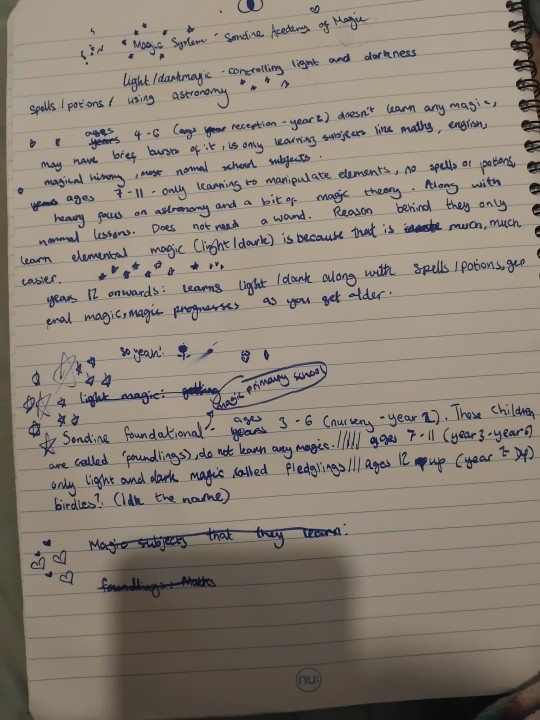 Magic System - Sondine Academy of Magic
light/darkmagic - controlling light and darkness
spells/potions/ using astronomy
ages 4-6 (age reception-year 2) doesn't learn any magic,
may have brief bursts of it, is only learning subjects like maths, english,
magical history, most normal school subjects.
ages 7-11 - only learning to manipulate elements, no spells or potions,
heavy focus on astronomy and a bit of magic theory. Along with
normal lessons. Does not need a wand. Reason behind they only
learn elemental magic (light/dark) is because that is much, much
easier.
years 12 onwards: learns light/dark along with spells/potions, gen
eral magic, magic progresses as you get older.
so yeah!
light magic:
magic primary school
Sondine foundational - ages 3-6 (nursery-year 2). These children
are called 'foundlings', do not learn any magic. ///// ages 7-11 (year 3-year 6)
only light and dark magic, called Fledglings /// ages 12 up (year 7 up)
birdies? (Idk the name)
Magic subjects that they learn:
foundlings: Maths
nu: